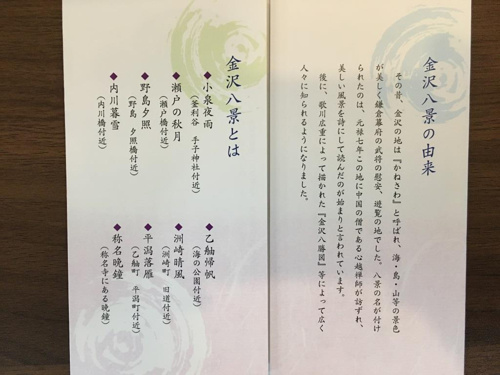 金沢八景の由来
その昔、金沢の地は『かねさわ』と呼ばれ、海・島・山等の景色
が美しく鎌倉幕府の武将の慰安、遊覧の地でした。八景の名が付け
られたのは、元禄七年この地に中国の僧である心越禅師が訪ずれ、
美しい風景を詩にして読んだのが始まりと言われています。
後に、歌川広重によって描かれた『金沢八勝図』等によって広く
人々に知られるようになりました。
金沢八景とは
◆小泉夜雨
（釜利谷 手子神社付近）
◆瀬戸の秋月
（瀬戸橋付近）
◆野島夕照
（野島 夕照橋付近）
◆内川暮雪
（内川橋付近）
◆乙舳帰帆
（海の公園付近）
◆洲崎晴嵐
（洲崎町 旧道付近）
◆平潟落雁
（乙舳町 平潟町付近）
◆称名晩鐘
（称名寺にある晩鐘）